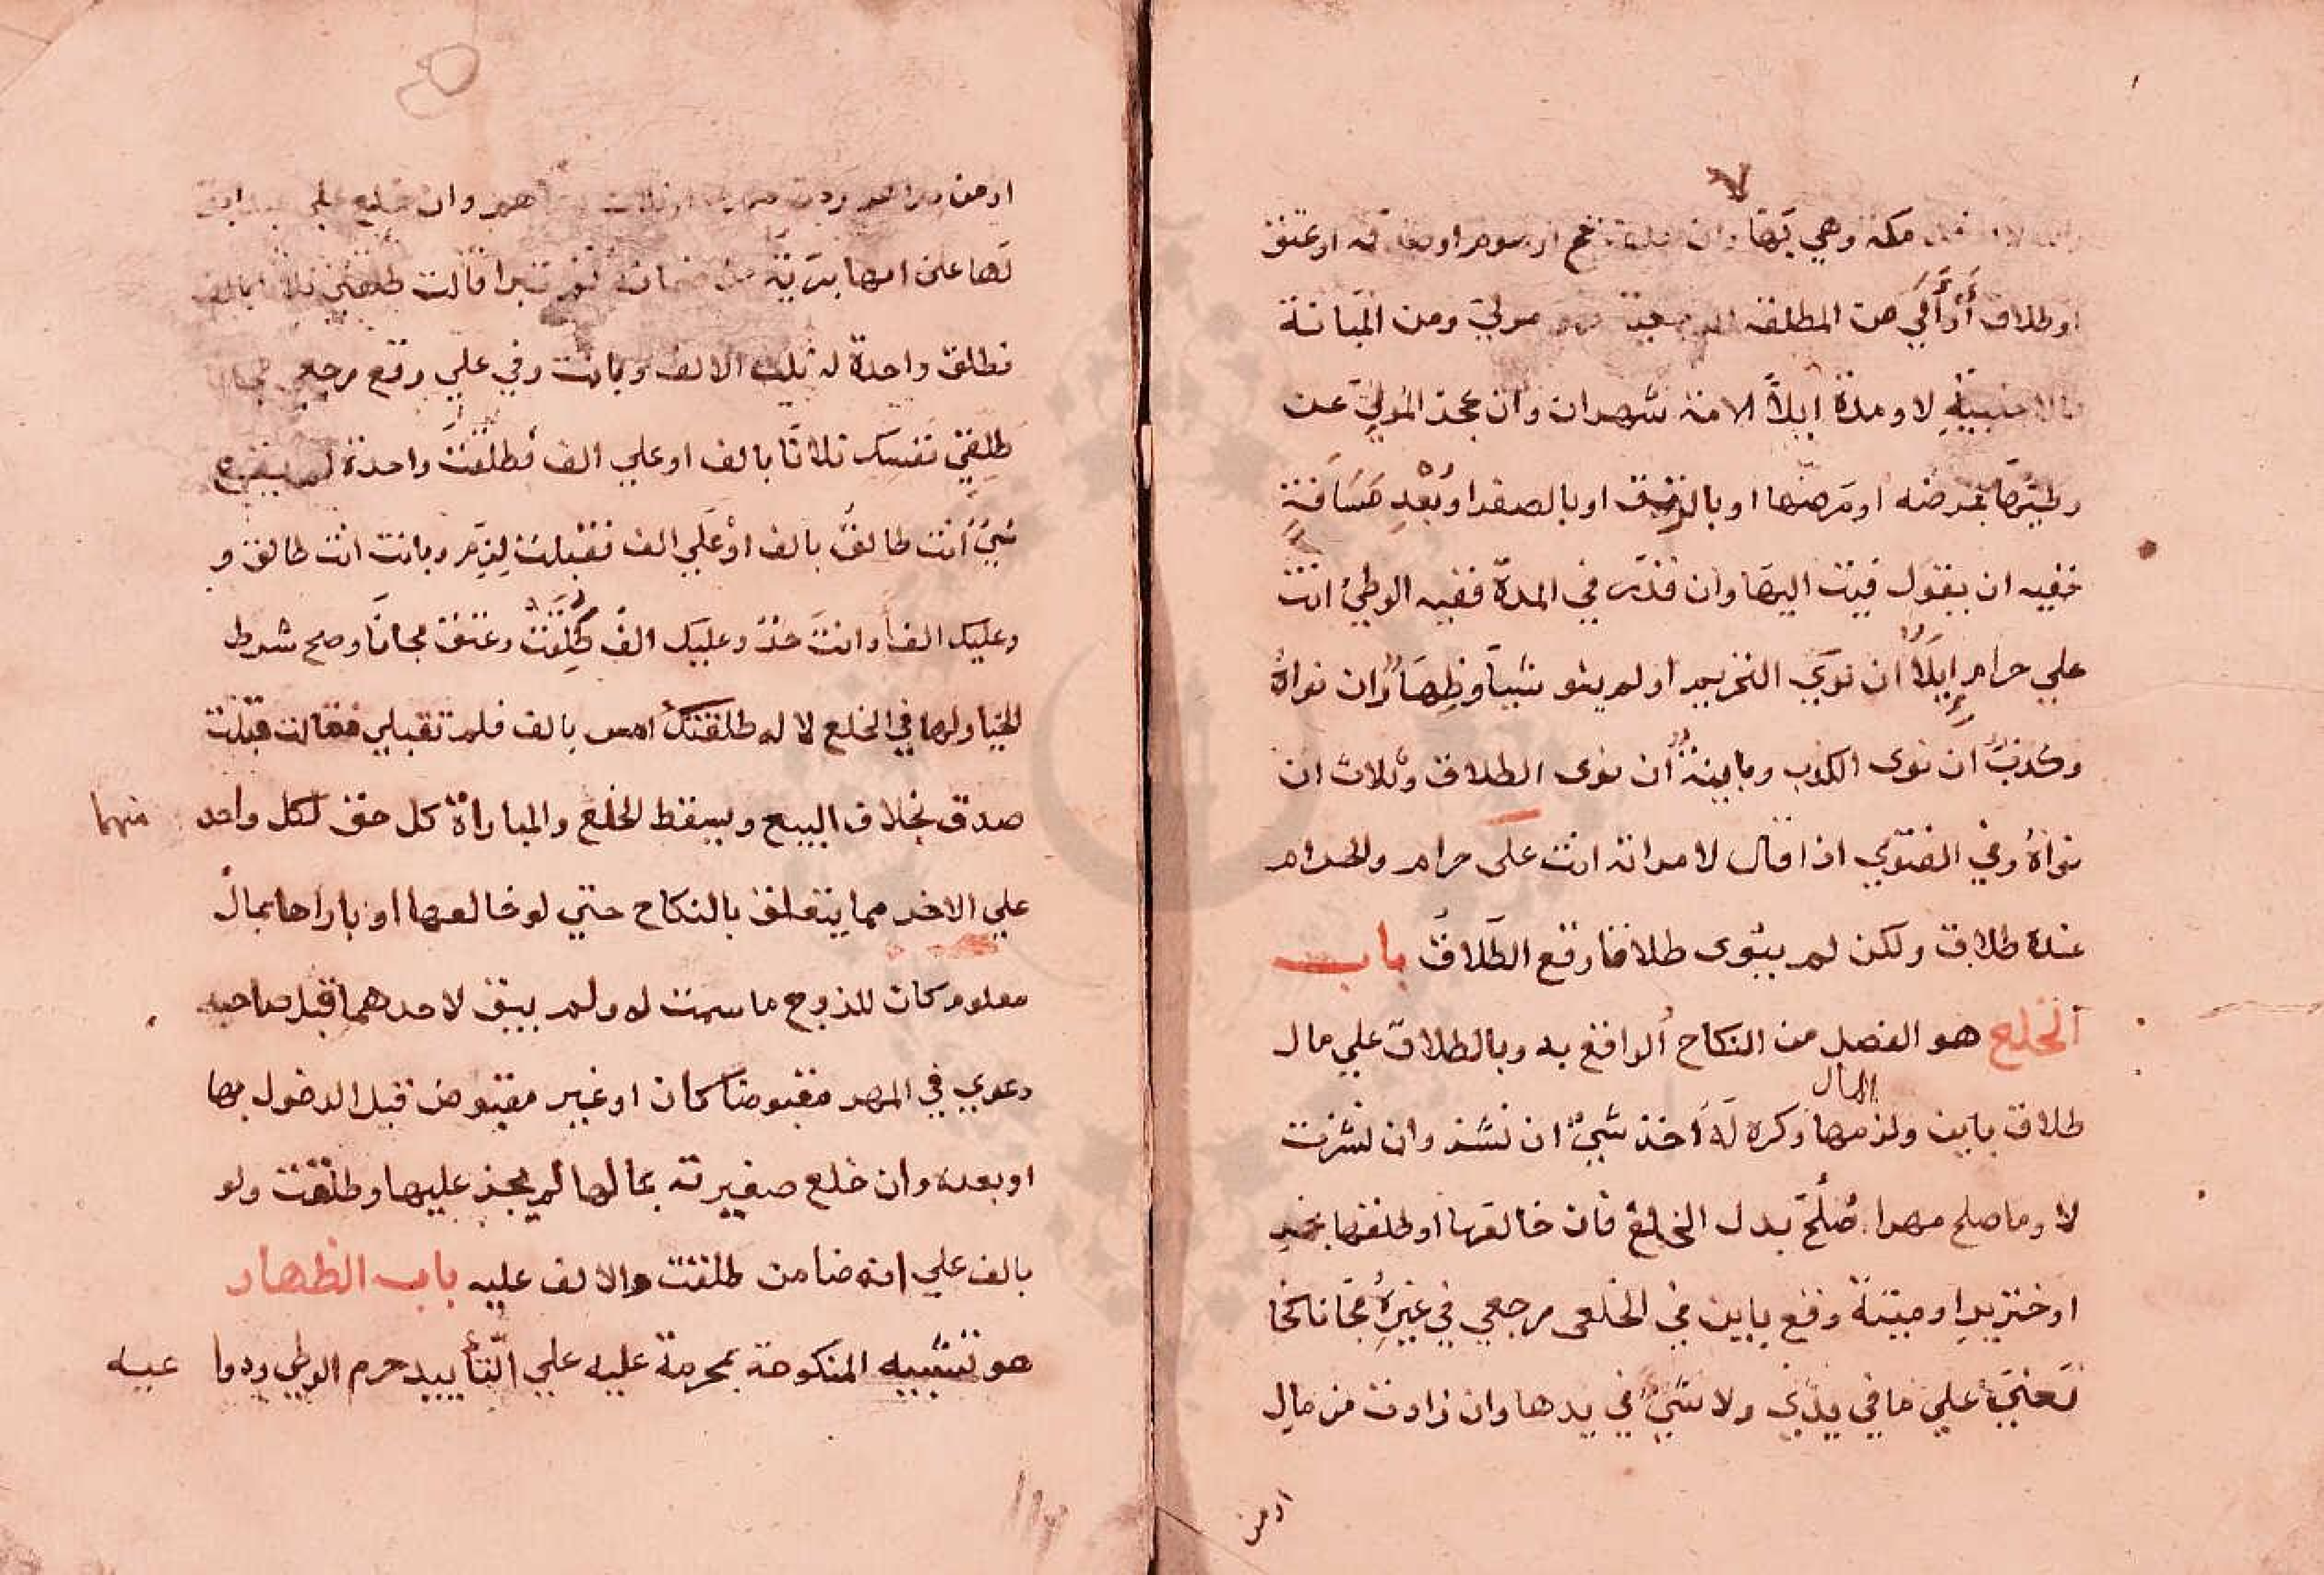 مكة وهي بها وان بحج او صوم او صدقة او عتق
او طلاق أو آلى من المطلقة الرجعية فهو مولي ومن المبانة
والاجنبية لا ومدة ايلاً الامة شهران وان عجز المولي عن
وطيها بمرضه او مرضها او بالرتق او بالصغر او بُعْدِ مَسَافةٍ
ففيه ان يقول فيت اليها وان قدر في المدة ففيه الوطيُ انت
علي حرام ايلاً ان نوي التحريم او لم ينو شيياً وظِهَارٌ ان نواه
وكذبٌ ان نوى الكذب وباينةٌ ان نوى الطلاق وثلاث ان
نواهُ وفي الفتوي اذا قال لامراته انت على حرام والحرام
عنده طلاق ولكن لم ينوى طلاقا وقع الطَّلاقُ باب
الخلع هو الفصل من النكاح الواقع به وبالطلاق علي مال
طلاق باين ولزمها المال وكره لَهُ اخذ شيٌ ان نشز وان نشزت
لا وما صلح مهرا صُلَحَ بدل الخلعْ فان خالعها او طلقها بخمرٍ
او خنزيرٍ او ميتة وقع باين في الخلع رجعي في غيرهُ مجَّانا كخا
لعني علي ما في يدي ولا شي في يدها وان زادت من مال
او من
او من دراهم ردت مهرها او ثلاث دراهم وان خلع علي عبد ابق
لها علي انها برية من ضمانه لم تبرا قالت طلقني ثلاثا بالف
فطلق واحدة له ثلث الالف وبانت وفي علي وقع رجعي مجانا
طلقي نفسك ثلاثا بالف او علي الف فطلقت واحدة لم يقع
شيٌ انت طالقٌ بالف او علي الف فقبلت لزم وبانت انت طالق و
وعليك الف او انت حرٌ وعليك الفٌ طُلِّقت وعتق مجانًا وصح شرط
الخيار لها في الخلع لا له طلقتك امس بالف فلم تقبلي فقالت قبلت
صدق بخلاف البيع ويسقط الخلع والمباراة كل حق لكل واحد منهما
علي الاخر مما يتعلق بالنكاح حتي لو خالعها او باراها بمال
معلوم كان للزوج ما سمت له ولم يبق لاحدهما قبل صاحبه
دعوي في المهر مقبوضا كان او غير مقبوض قبل الدخول بها
او بعده وان خلع صغيرته بمالها لم يجز عليها وطلقت ولو
بالف علي انه ضامن طلقت والالف عليه باب الظهار
هو تشبيه المنكوحة بمحرمة عليه علي التأبيد حرم الوطي ودوا عيه